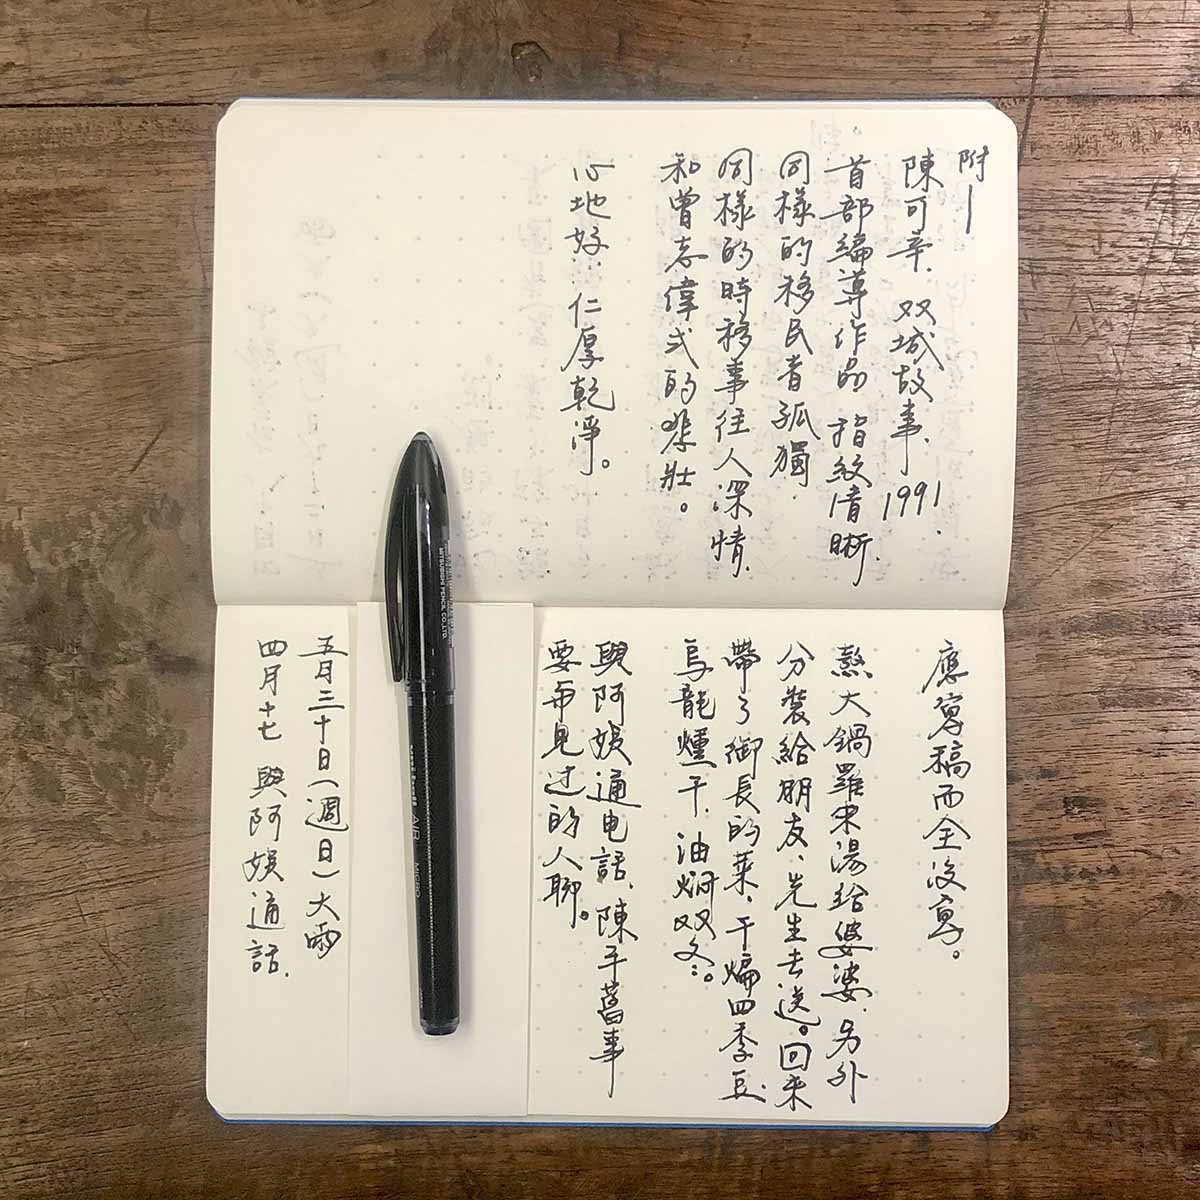 附一
陳可辛.双城故事.1991.
首部編導作品 指紋清晰.
同樣的移民者孤獨.
同樣的時移事往人深情.
和曾志偉式的悲壯。
心地好.仁厚乾淨。
應寫稿而全沒寫。
熬大鍋羅宋湯給婆婆.另外
分裝給朋友、先生去送。回來
帶了御長的菜、干煸四季豆.
烏龍燻干.油燜双冬。
與阿娛通电話.陳年舊事
要再見过的人聊。
五月三十日(週日)大雨
四月十七 與阿娛通話.
MITSUBISHI PENCIL CO.,LTD.
uni-ball AIR MICRO